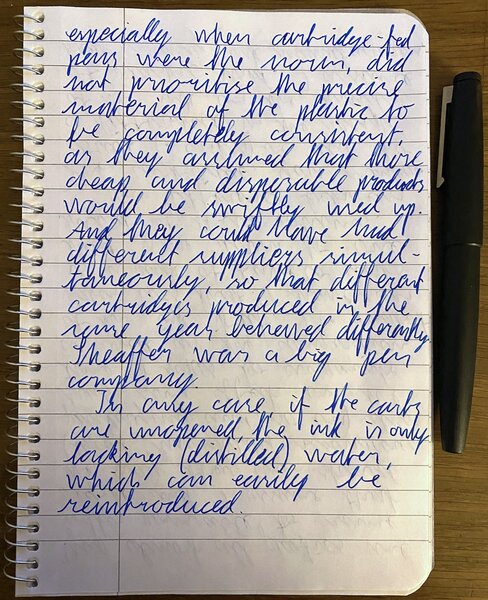 especially when cartridge-fed
pens where the norm, did
not prioritise the precise
material of the plastic to
be completely consistent,
as they assumed that those
cheap and disposable products
would be swiftly used up.
And they could have had
different suppliers simul-
taneously, so that different
cartridges produced in the
same year behaved differently.
Sheaffer was a big pen
company.
In any case if the carts
are unopened, the ink is only
lacking (distilled) water,
which can easily be
reintroduced.